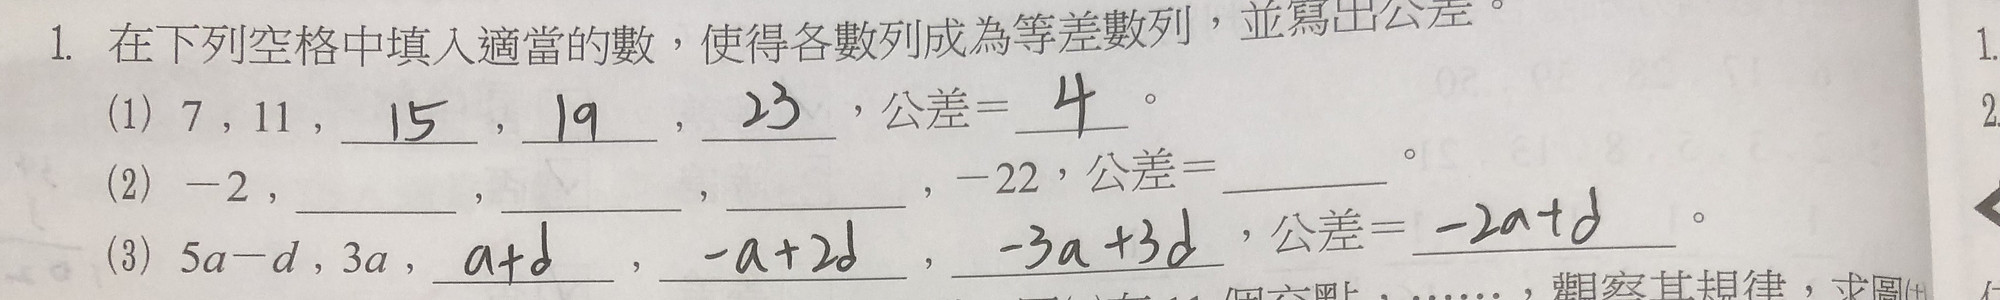 1. 在下列空格中填入適當的數，使得各數列成為等差數列，並寫出公差。
(1) 7，11，15，19，23，公差＝4。
(2) －2，____，____，____，－22，公差＝____。
(3) 5a－d，3a，a+d，-a+2d，-3a+3d，公差＝-2a+d。
，……，觀察其規律，求圖
1.
2.